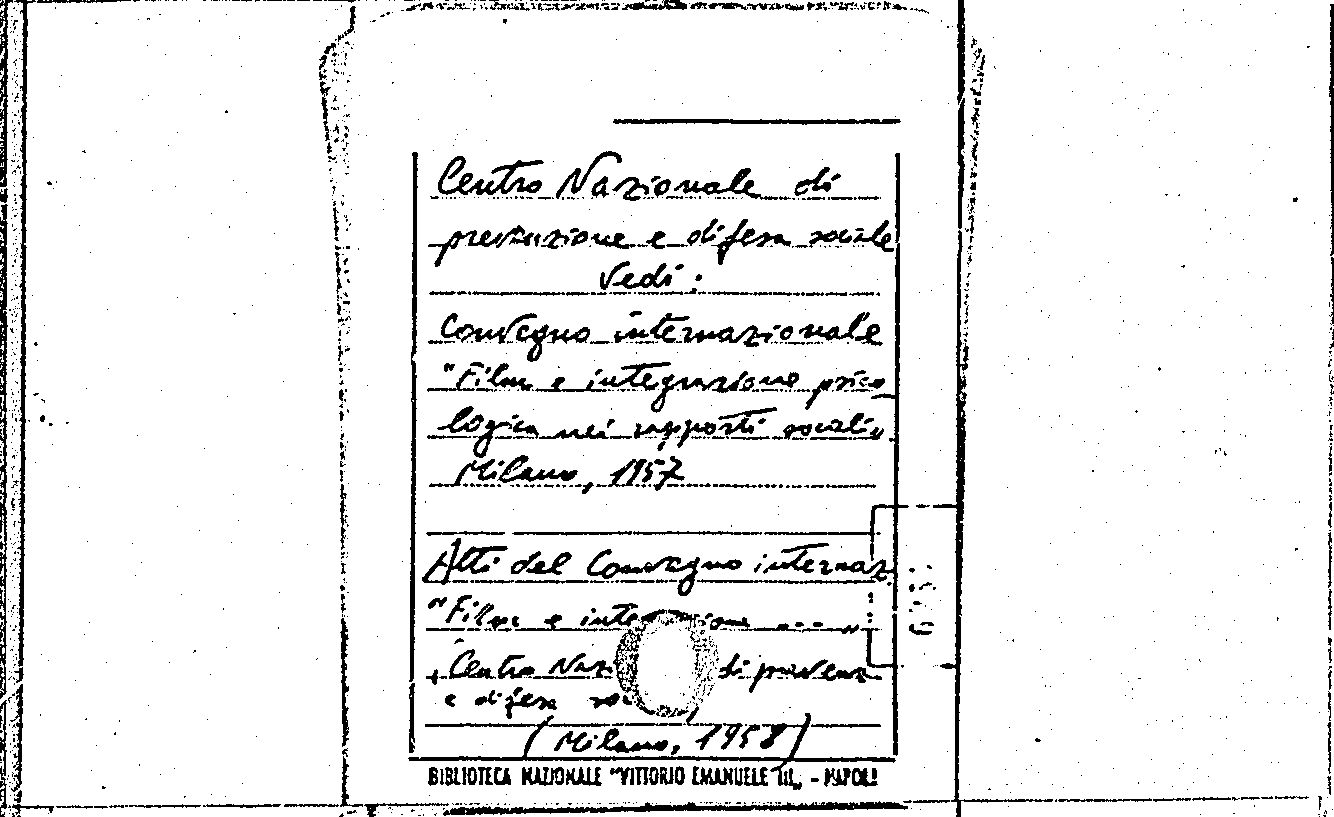 Centro Nazionale di
prevenzione e difesa sociale
Vedi:
Convegno internazionale
"Film e integrazione psico
logica nei rapporti sociali„
Milano, 1957
Atti del Convegno internaz
"Film e integrazione ---- „
Centro Nazi di prevenz
e difesa so
(Milano, 1958)
BIBLIOTECA NAZIONALE "VITTORIO EMANUELE III„ - NAPOLI